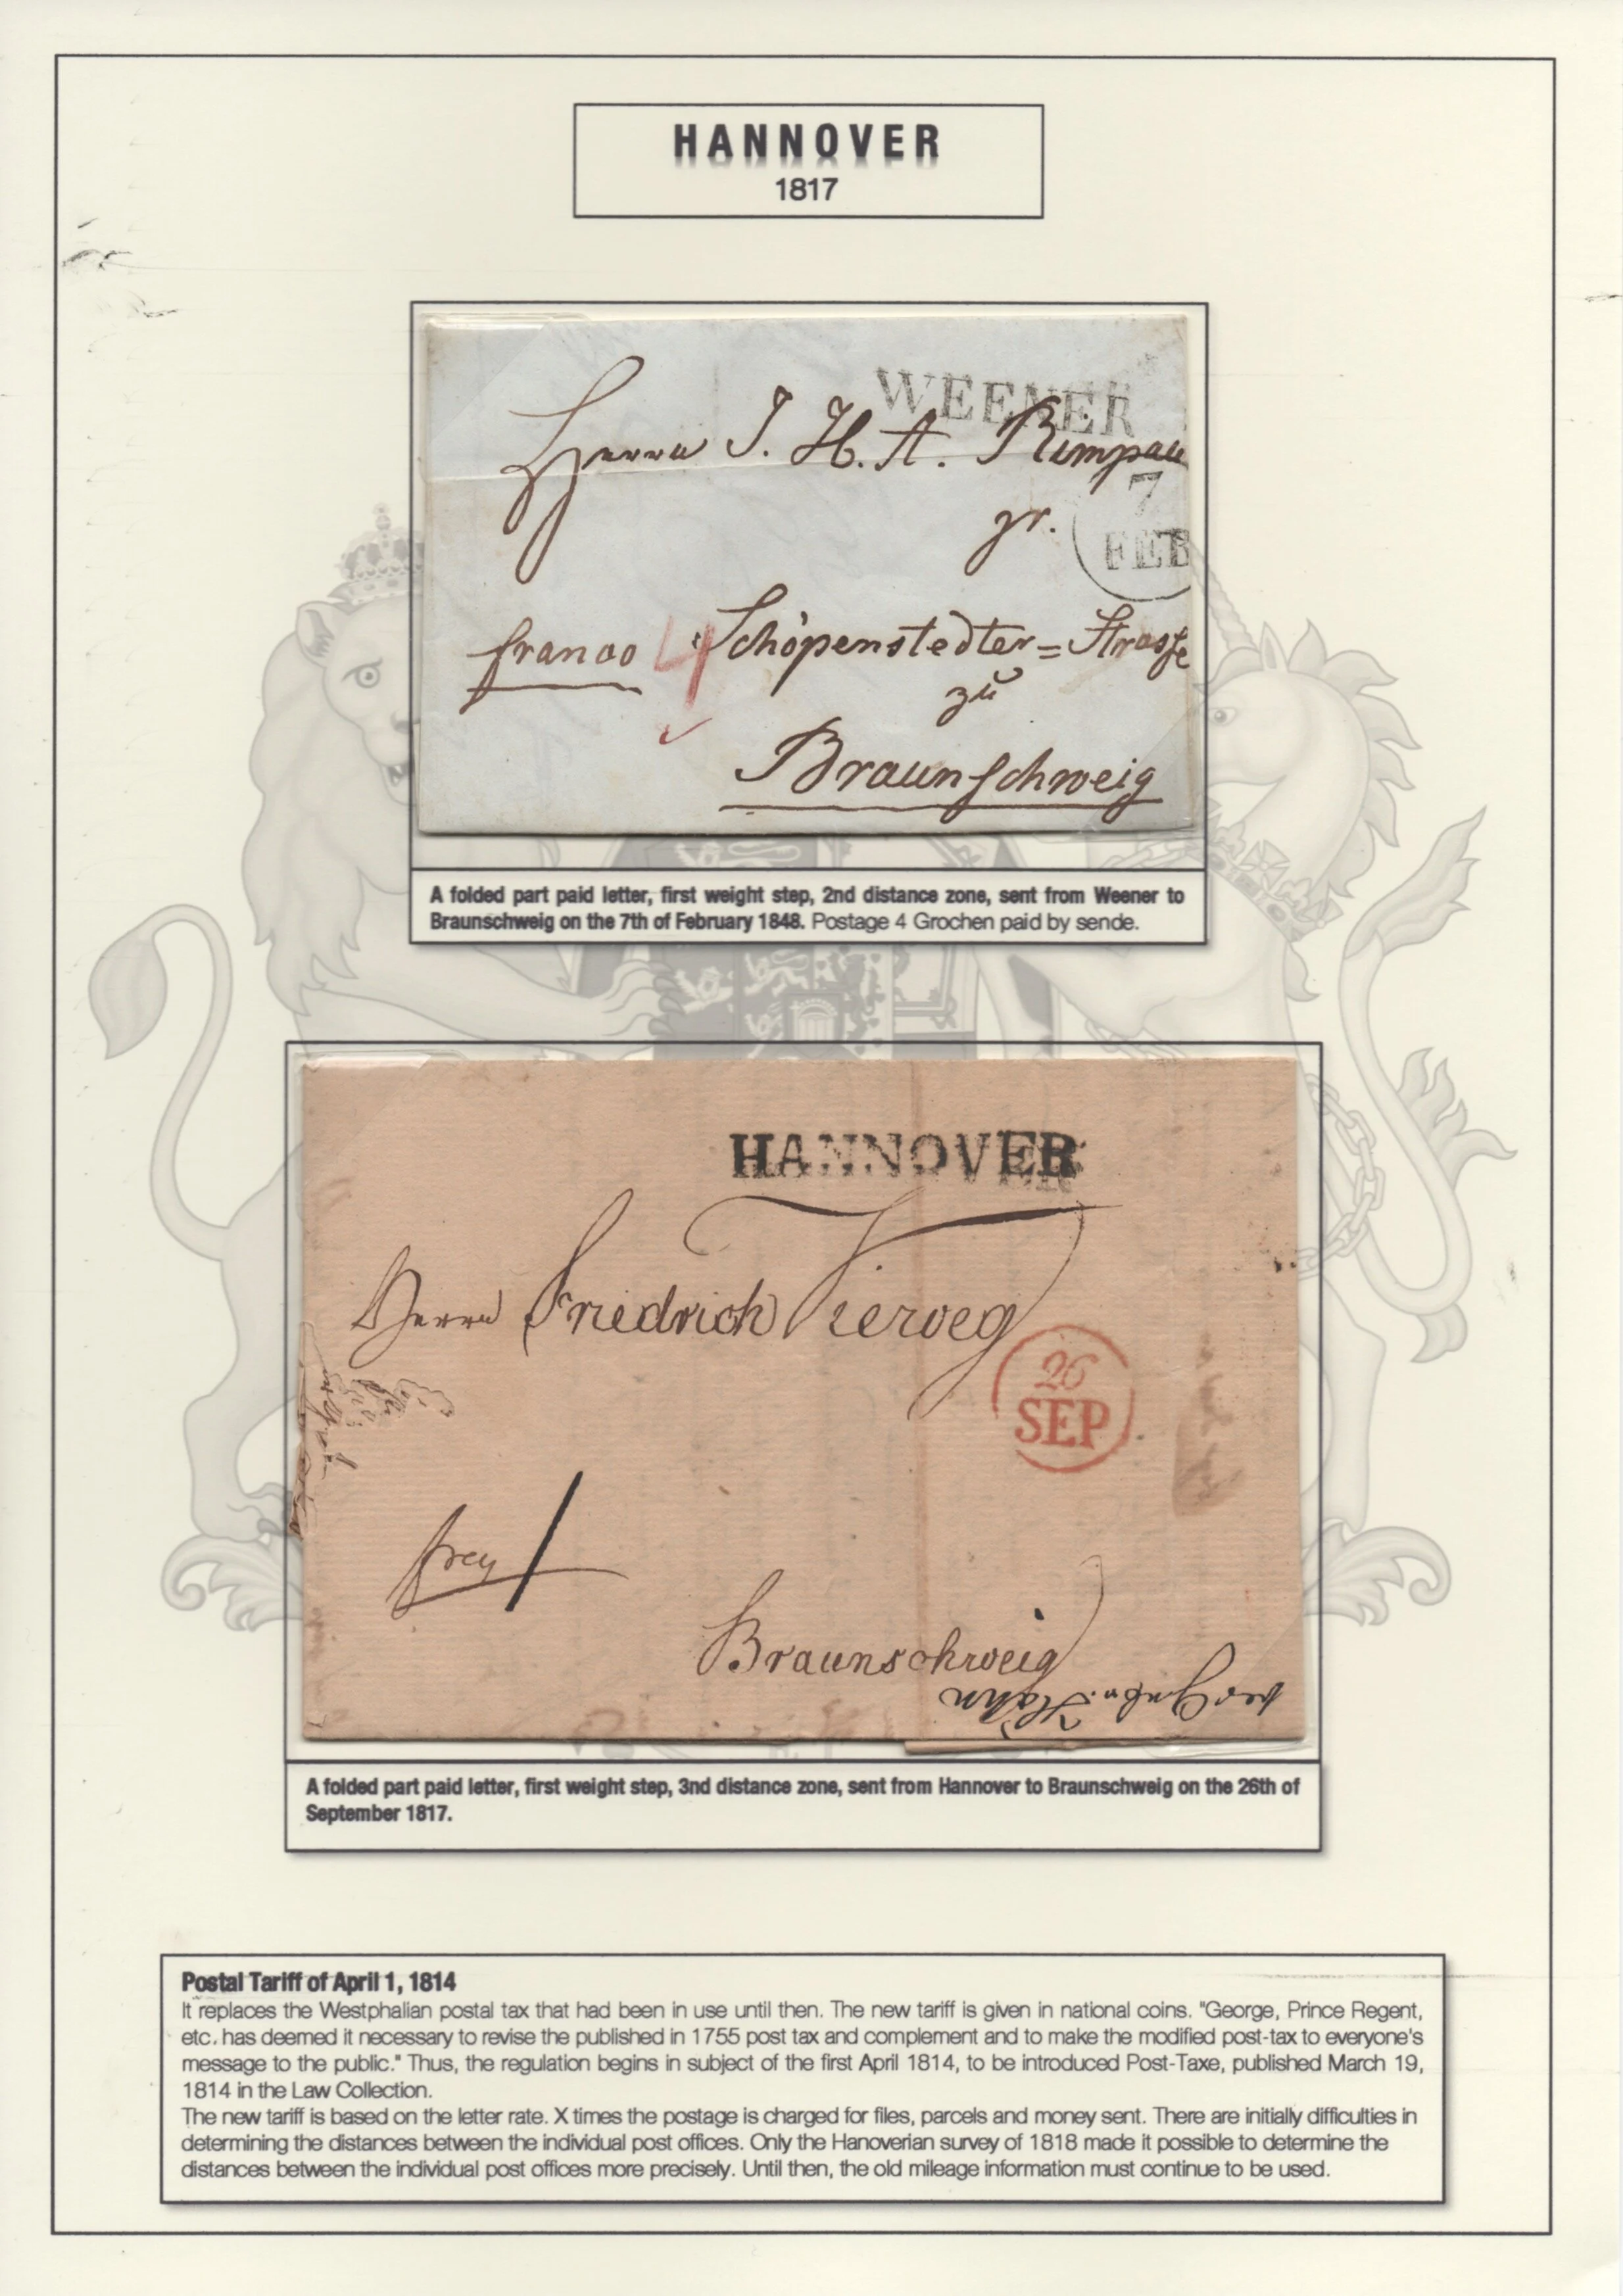 HANNOVER
1817
WEENER
Herrn J. H. A. Rimpau
7
FEB
gr.
franco 4 Schöpenstedter=Strasse
zu
Braunschweig
A folded part paid letter, first weight step, 2nd distance zone, sent from Weener to
Braunschweig on the 7th of February 1848. Postage 4 Grochen paid by sende.
HANNOVER
Herrn Friedrich Vieweg
26
SEP
frey
Braunschweig
A folded part paid letter, first weight step, 3nd distance zone, sent from Hannover to Braunschweig on the 26th of
September 1817.
Postal Tariff of April 1, 1814
It replaces the Westphalian postal tax that had been in use until then. The new tariff is given in national coins. "George, Prince Regent,
etc. has deemed it necessary to revise the published in 1755 post tax and complement and to make the modified post-tax to everyone's
message to the public." Thus, the regulation begins in subject of the first April 1814, to be introduced Post-Taxe, published March 19,
1814 in the Law Collection.
The new tariff is based on the letter rate. X times the postage is charged for files, parcels and money sent. There are initially difficulties in
determining the distances between the individual post offices. Only the Hanoverian survey of 1818 made it possible to determine the
distances between the individual post offices more precisely. Until then, the old mileage information must continue to be used.